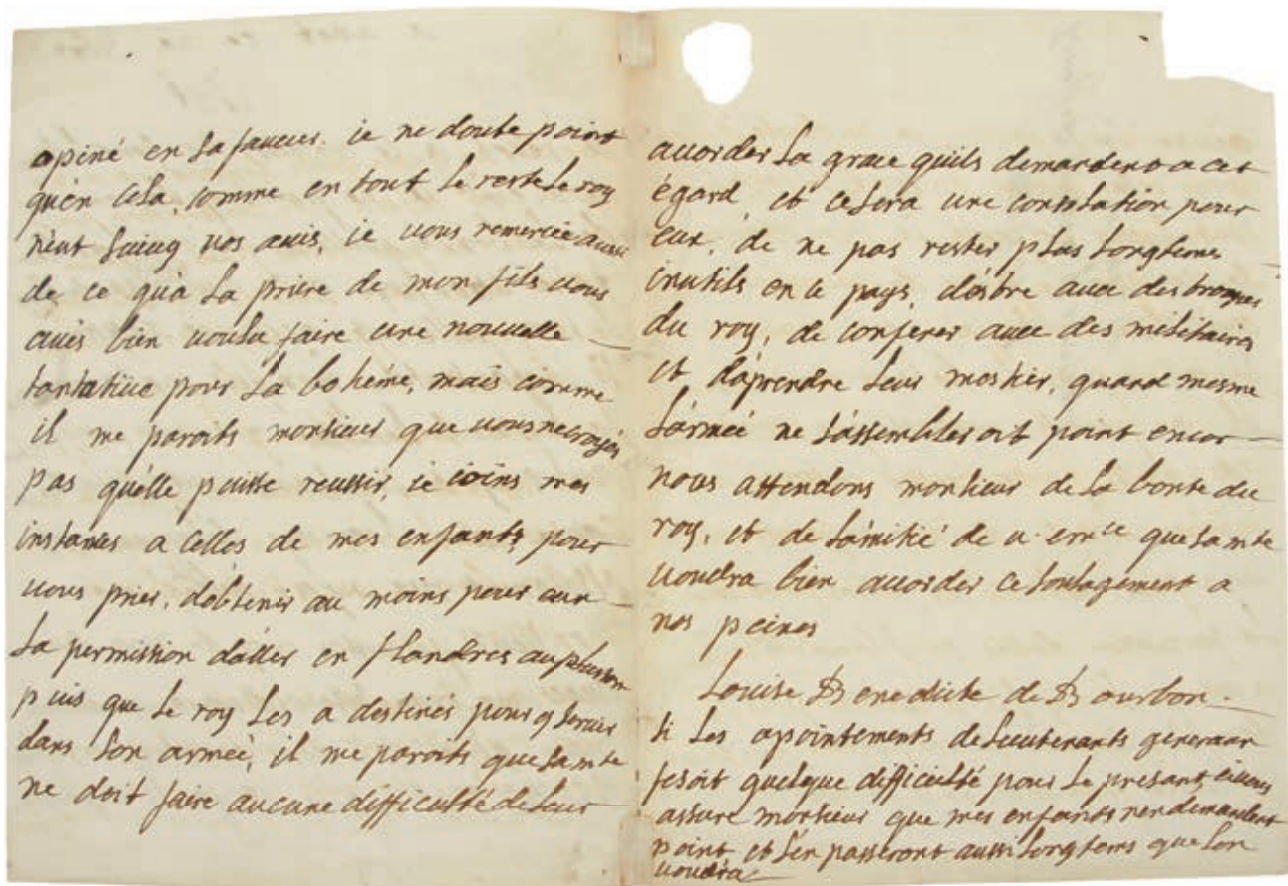 opiné en sa faveur. ie ne doute point
qu'en cela, comme en tout le reste le roy
n'eut suivy vos avis, ie vous remercie aussi
de ce qu'a la priere de mon fils vous
aviés bien voulu faire une nouvelle
tantative pour la bohéme, mais comme
il me paroits monsieur que vous ne croyés
pas qu'elle puisse reussir, ie ioins mes
instances a celles de mes enfants, pour
vous prier, d'obtenir au moins pour eux
la permission d'aller en flandres au plustost
puis que le roy les a destinés pour y servir
dans son armeé, il me paroits que sa mte
ne doit faire aucune difficulté de leur
accorder la grace quils demandent a cet
égard, et ce sera une consolation pour
eux, de ne pas rester plus longtems
inutils en ce pays, d'estre avec des troupes
du roy, de conferer avec des militaires
et d'aprendre leur mestier, quand mesme
l'armeé ne s'assembleroit point encor
nous attendons monsieur de la bonté du
roy, et de l'amitié de v. emce que sa mte
voudra bien accorder ce soulagement a
nos peines
Louise Benedicte de Bourbon.
si les apointements de lieutenants generaux
fesoit quelque difficulté pour le presant ie vous
assure monsieur que mes enfants n'en demandent
point et s'en passeront aussi longtems que l'on
voudra